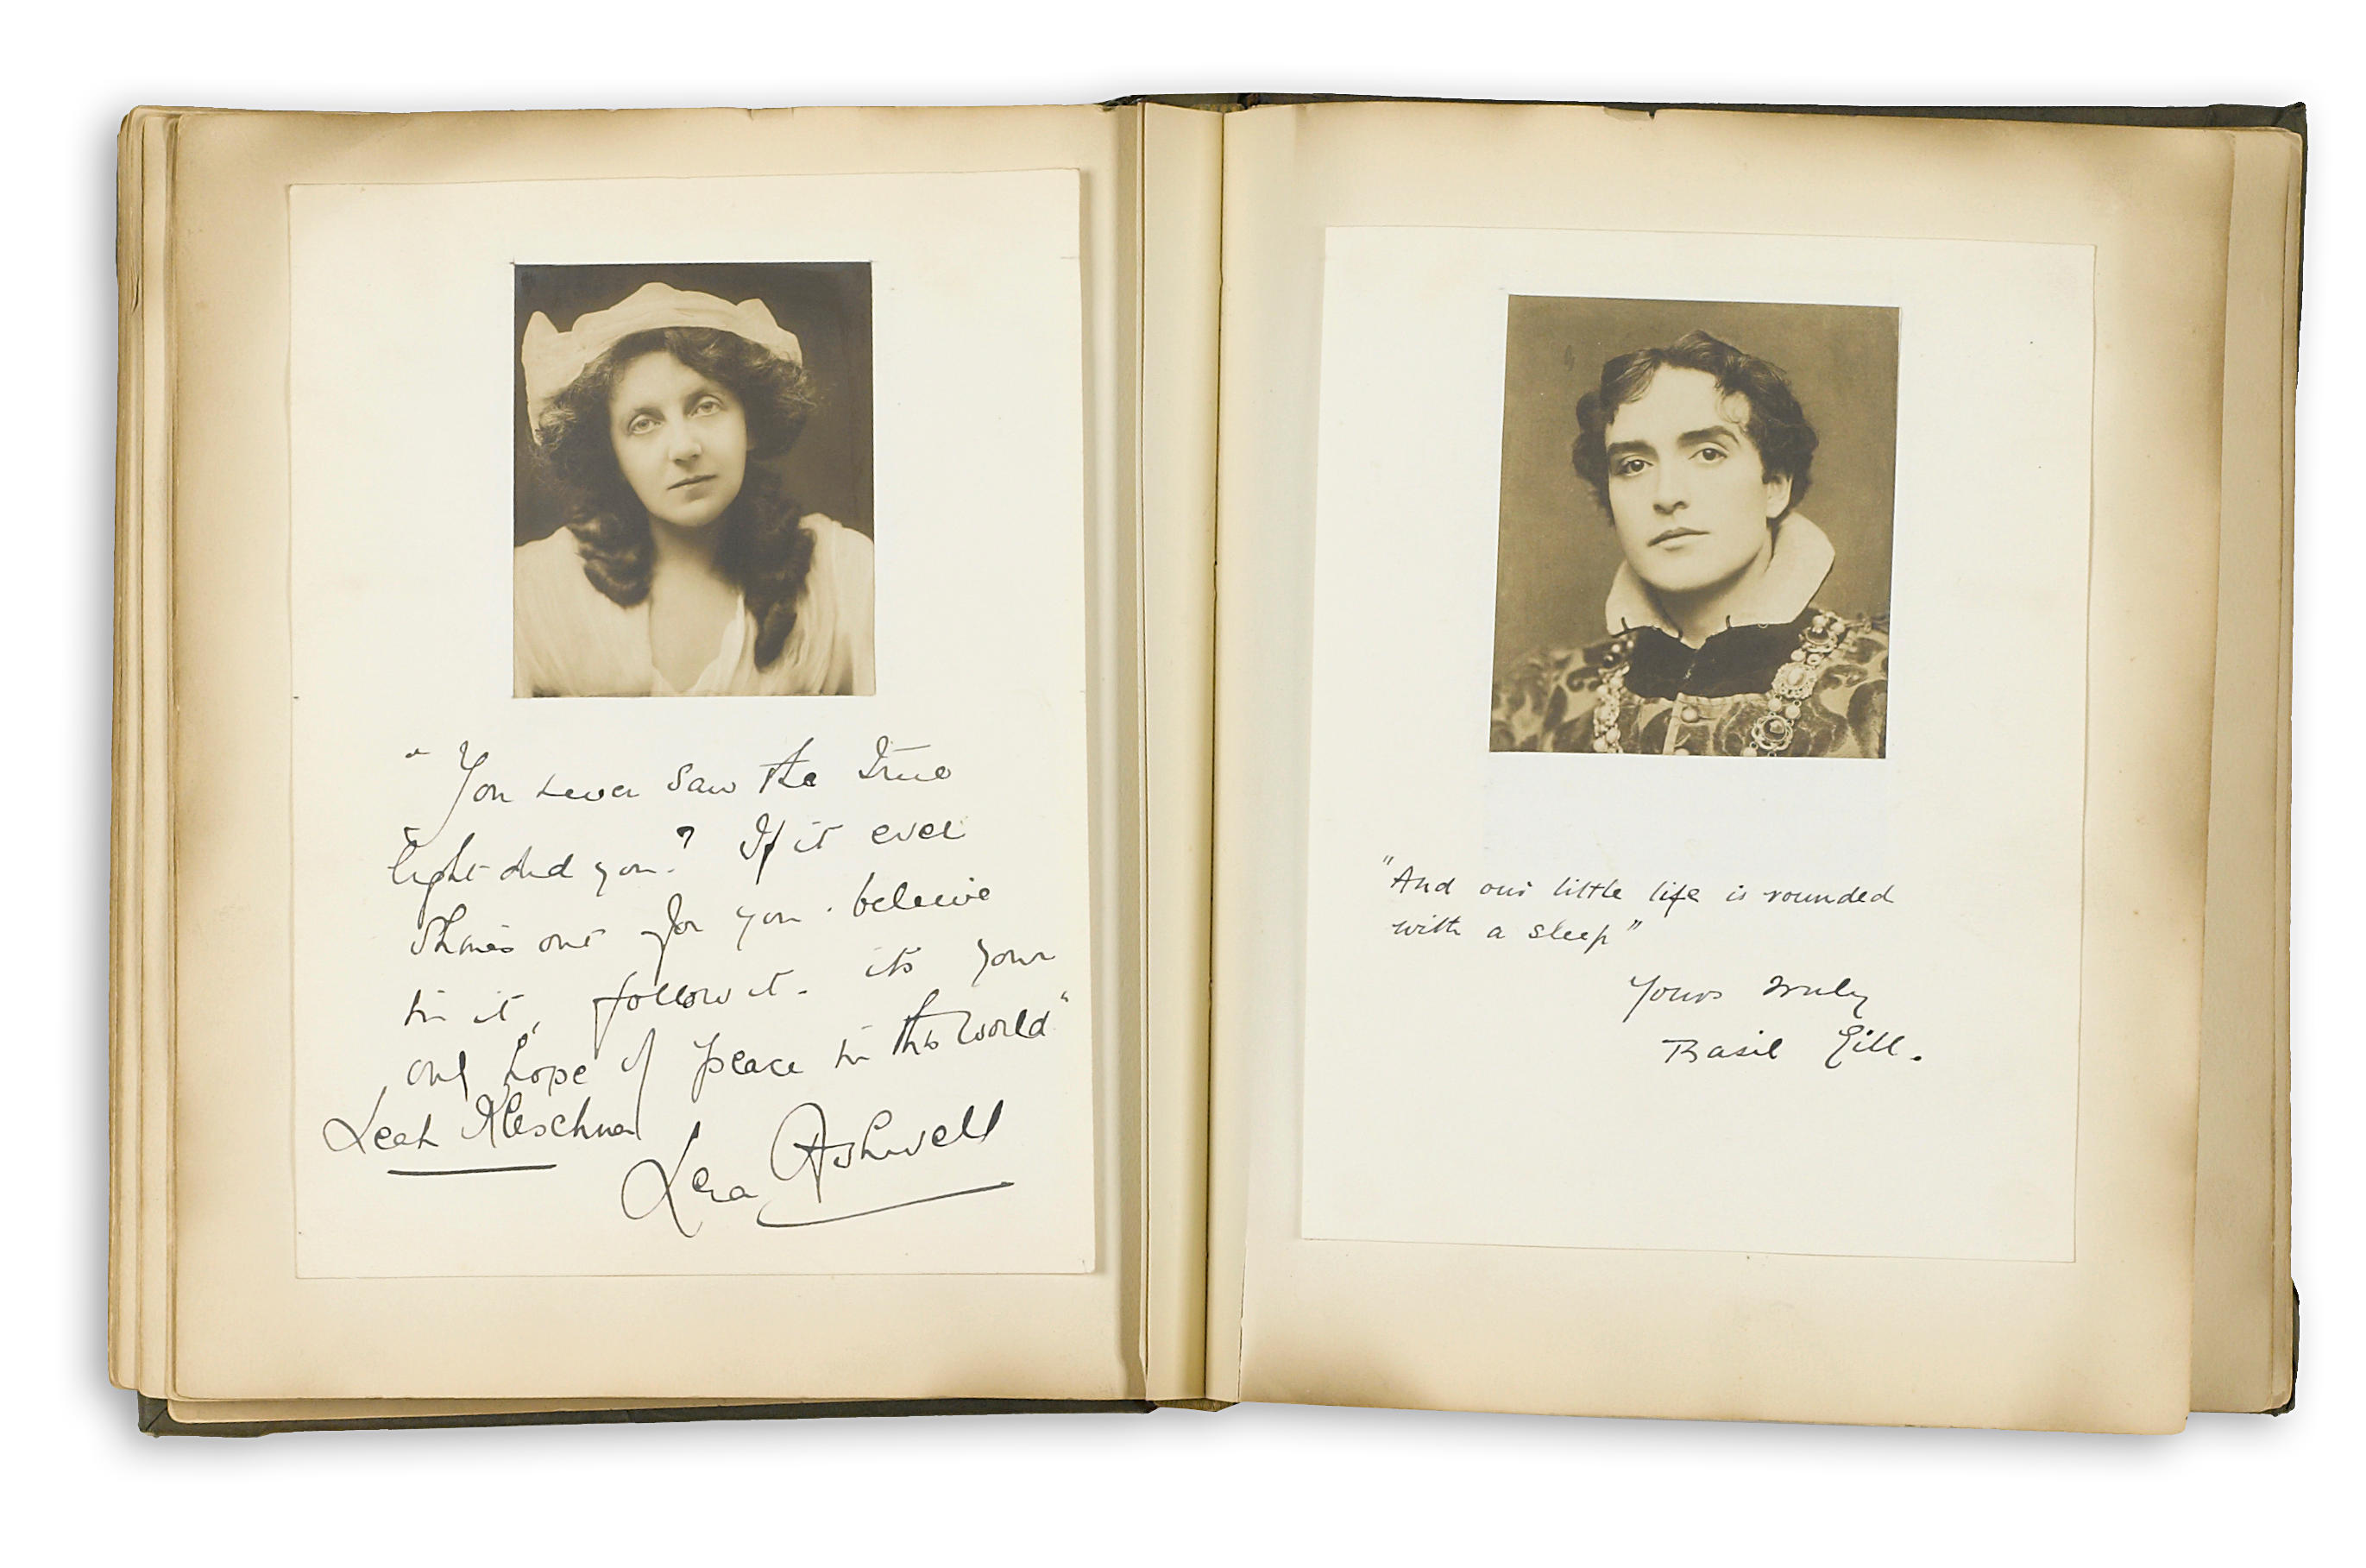 "You never saw the true
light did you? If it ever
shines out for you. believe
in it, follow it. its your
one hope of peace in this world"
Leah Kleschna
Lena Ashwell
"And our little life is rounded
with a sleep"
Yours truly
Basil Gill.